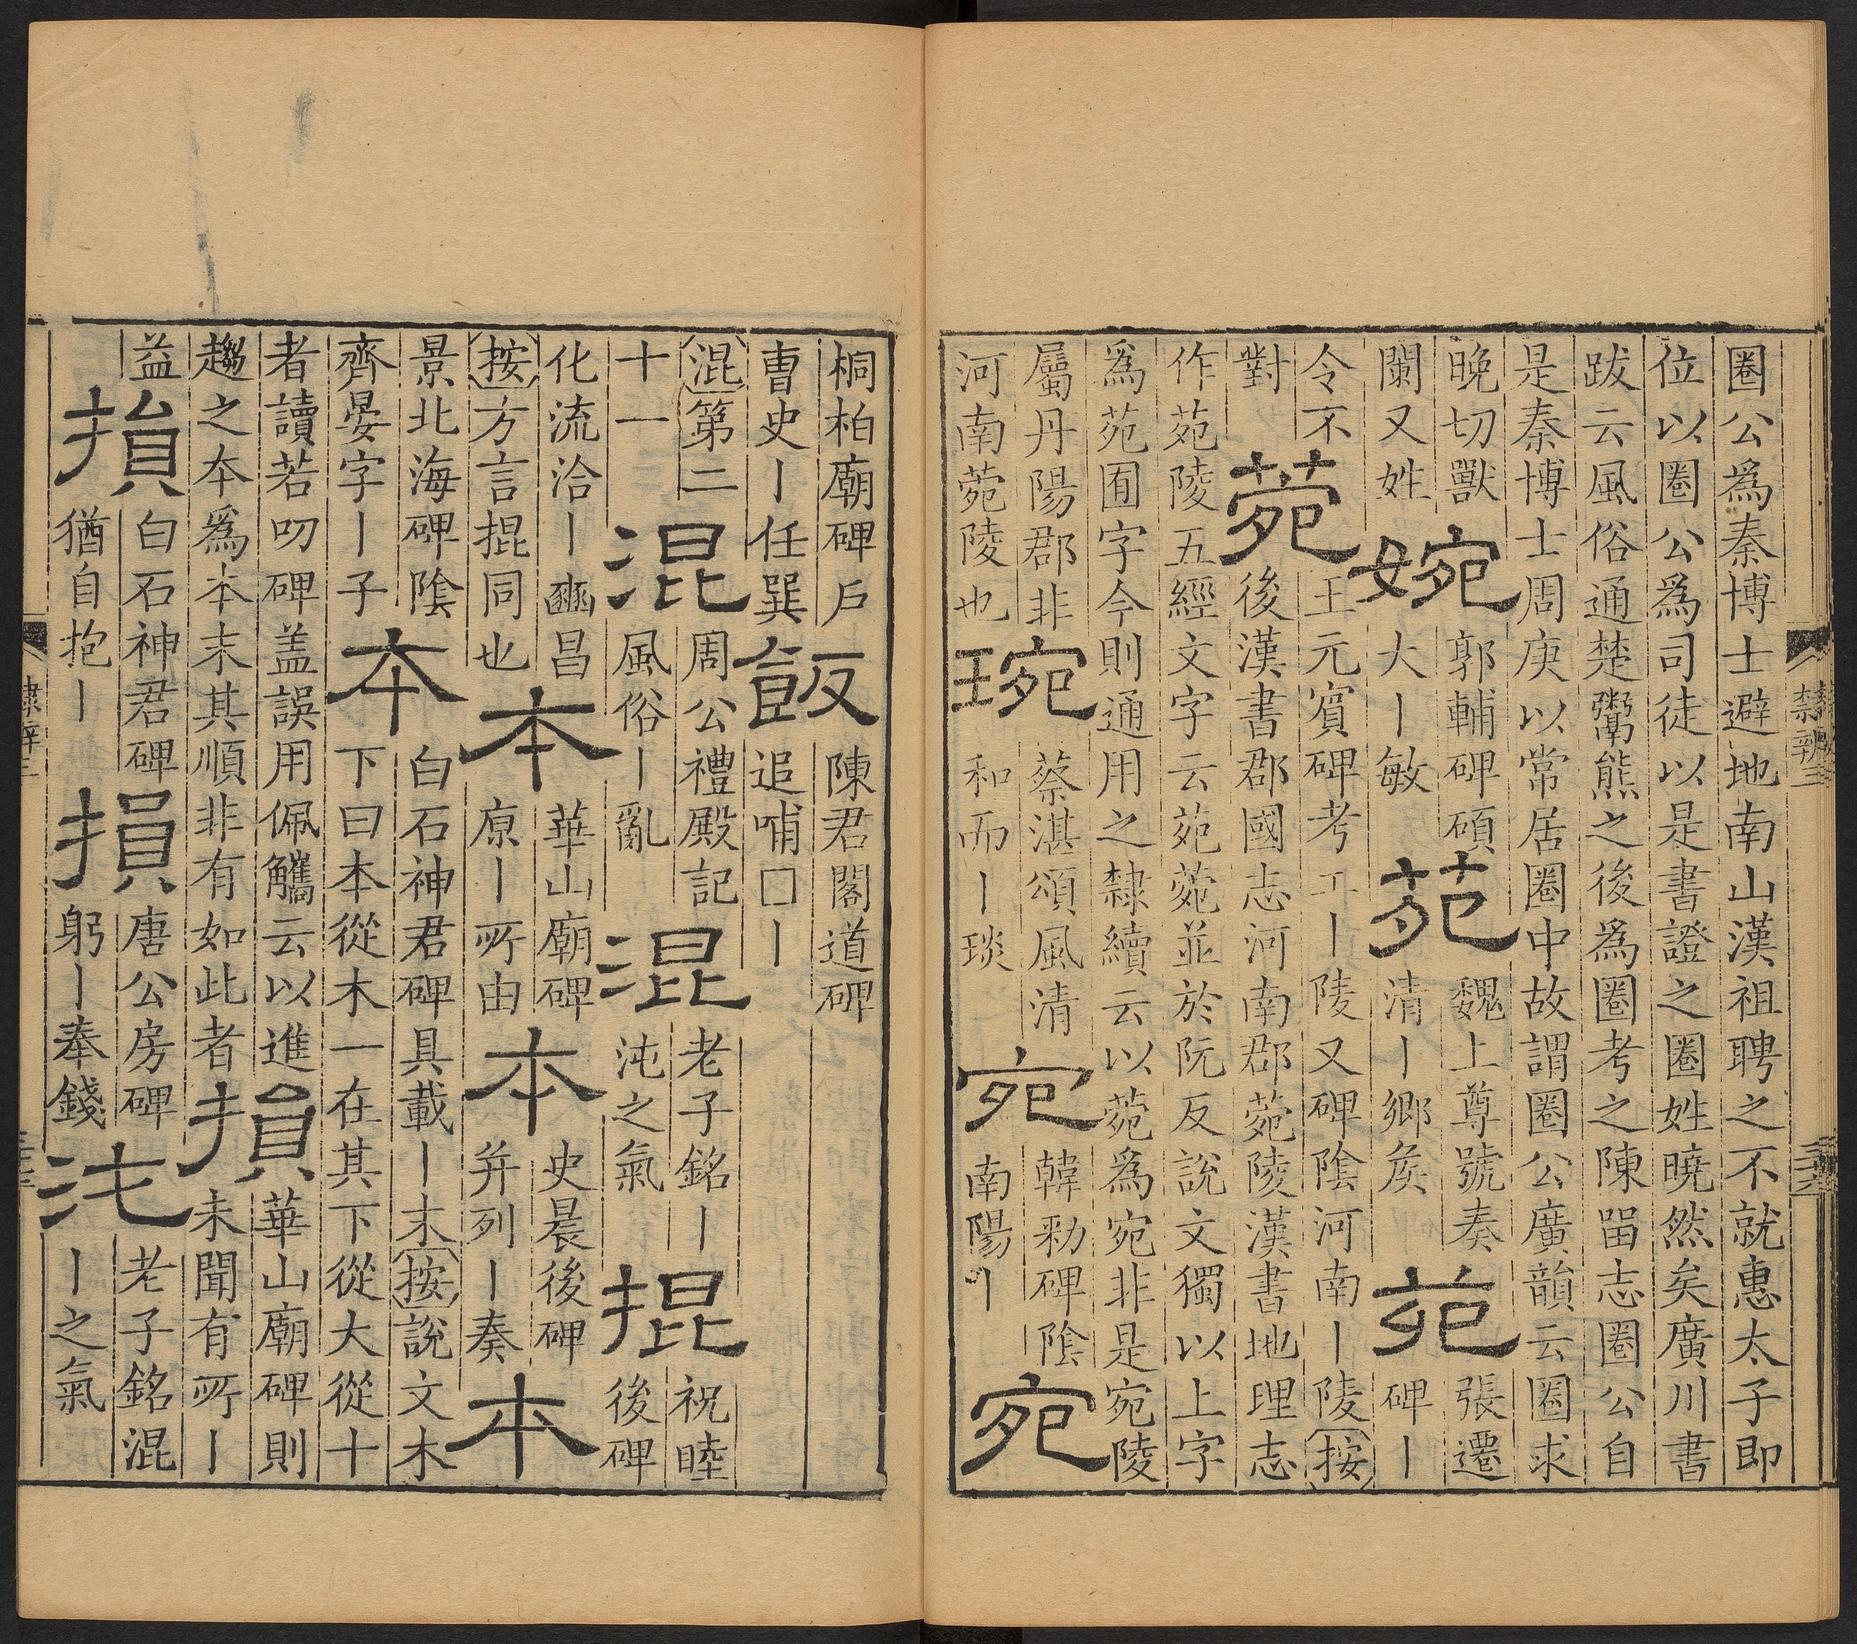 圈公爲秦博士避地南山漢祖聘之不就惠太子即
位以圈公爲司徒以是書證之圈姓曉然矣廣川書
跋云風俗通楚鬻熊之後爲圈考之陳畱志圈公自
是秦博士周庚以常居圈中故謂圈公廣韻云圈求
晚切獸
闌又姓
婉
郭輔碑碩
大丨敏
苑
魏上尊號奏
清丨鄉矦
苑
張遷
碑丨
令不
對
菀
王元賓碑考工丨陵又碑陰河南丨陵按
後漢書郡國志河南郡菀陵漢書地理志
作苑陵五經文字云苑菀並於阮反說文獨以上字
爲苑囿字今則通用之隸續云以菀爲宛非是宛陵
屬丹陽郡非
河南菀陵也
琬
蔡湛頌風清
和而丨琰
宛
韓勑碑陰
南陽丨
宛
隸辨三
桐柏廟碑戶
曹史丨任巽
飯
陳君閣道碑
追哺□丨
混第二
十一
混
周公禮殿記
風俗丨亂
混
老子銘丨
沌之氣
掍
祝睦
後碑
化流洽丨豳昌
按方言掍同也
本
華山廟碑
原丨所由
本
史晨後碑
并列丨奏
本
景北海碑陰
齊晏字丨子
夲
白石神君碑具載丨末按說文木
下曰本從木一在其下從大從十
者讀若叨碑盖誤用佩觿云以進
趨之夲爲本末其順非有如此者
損
華山廟碑則
未聞有所丨
益
損
白石神君碑
猶自抱丨
損
唐公房碑
躬丨奉錢
沌
老子銘混
丨之氣